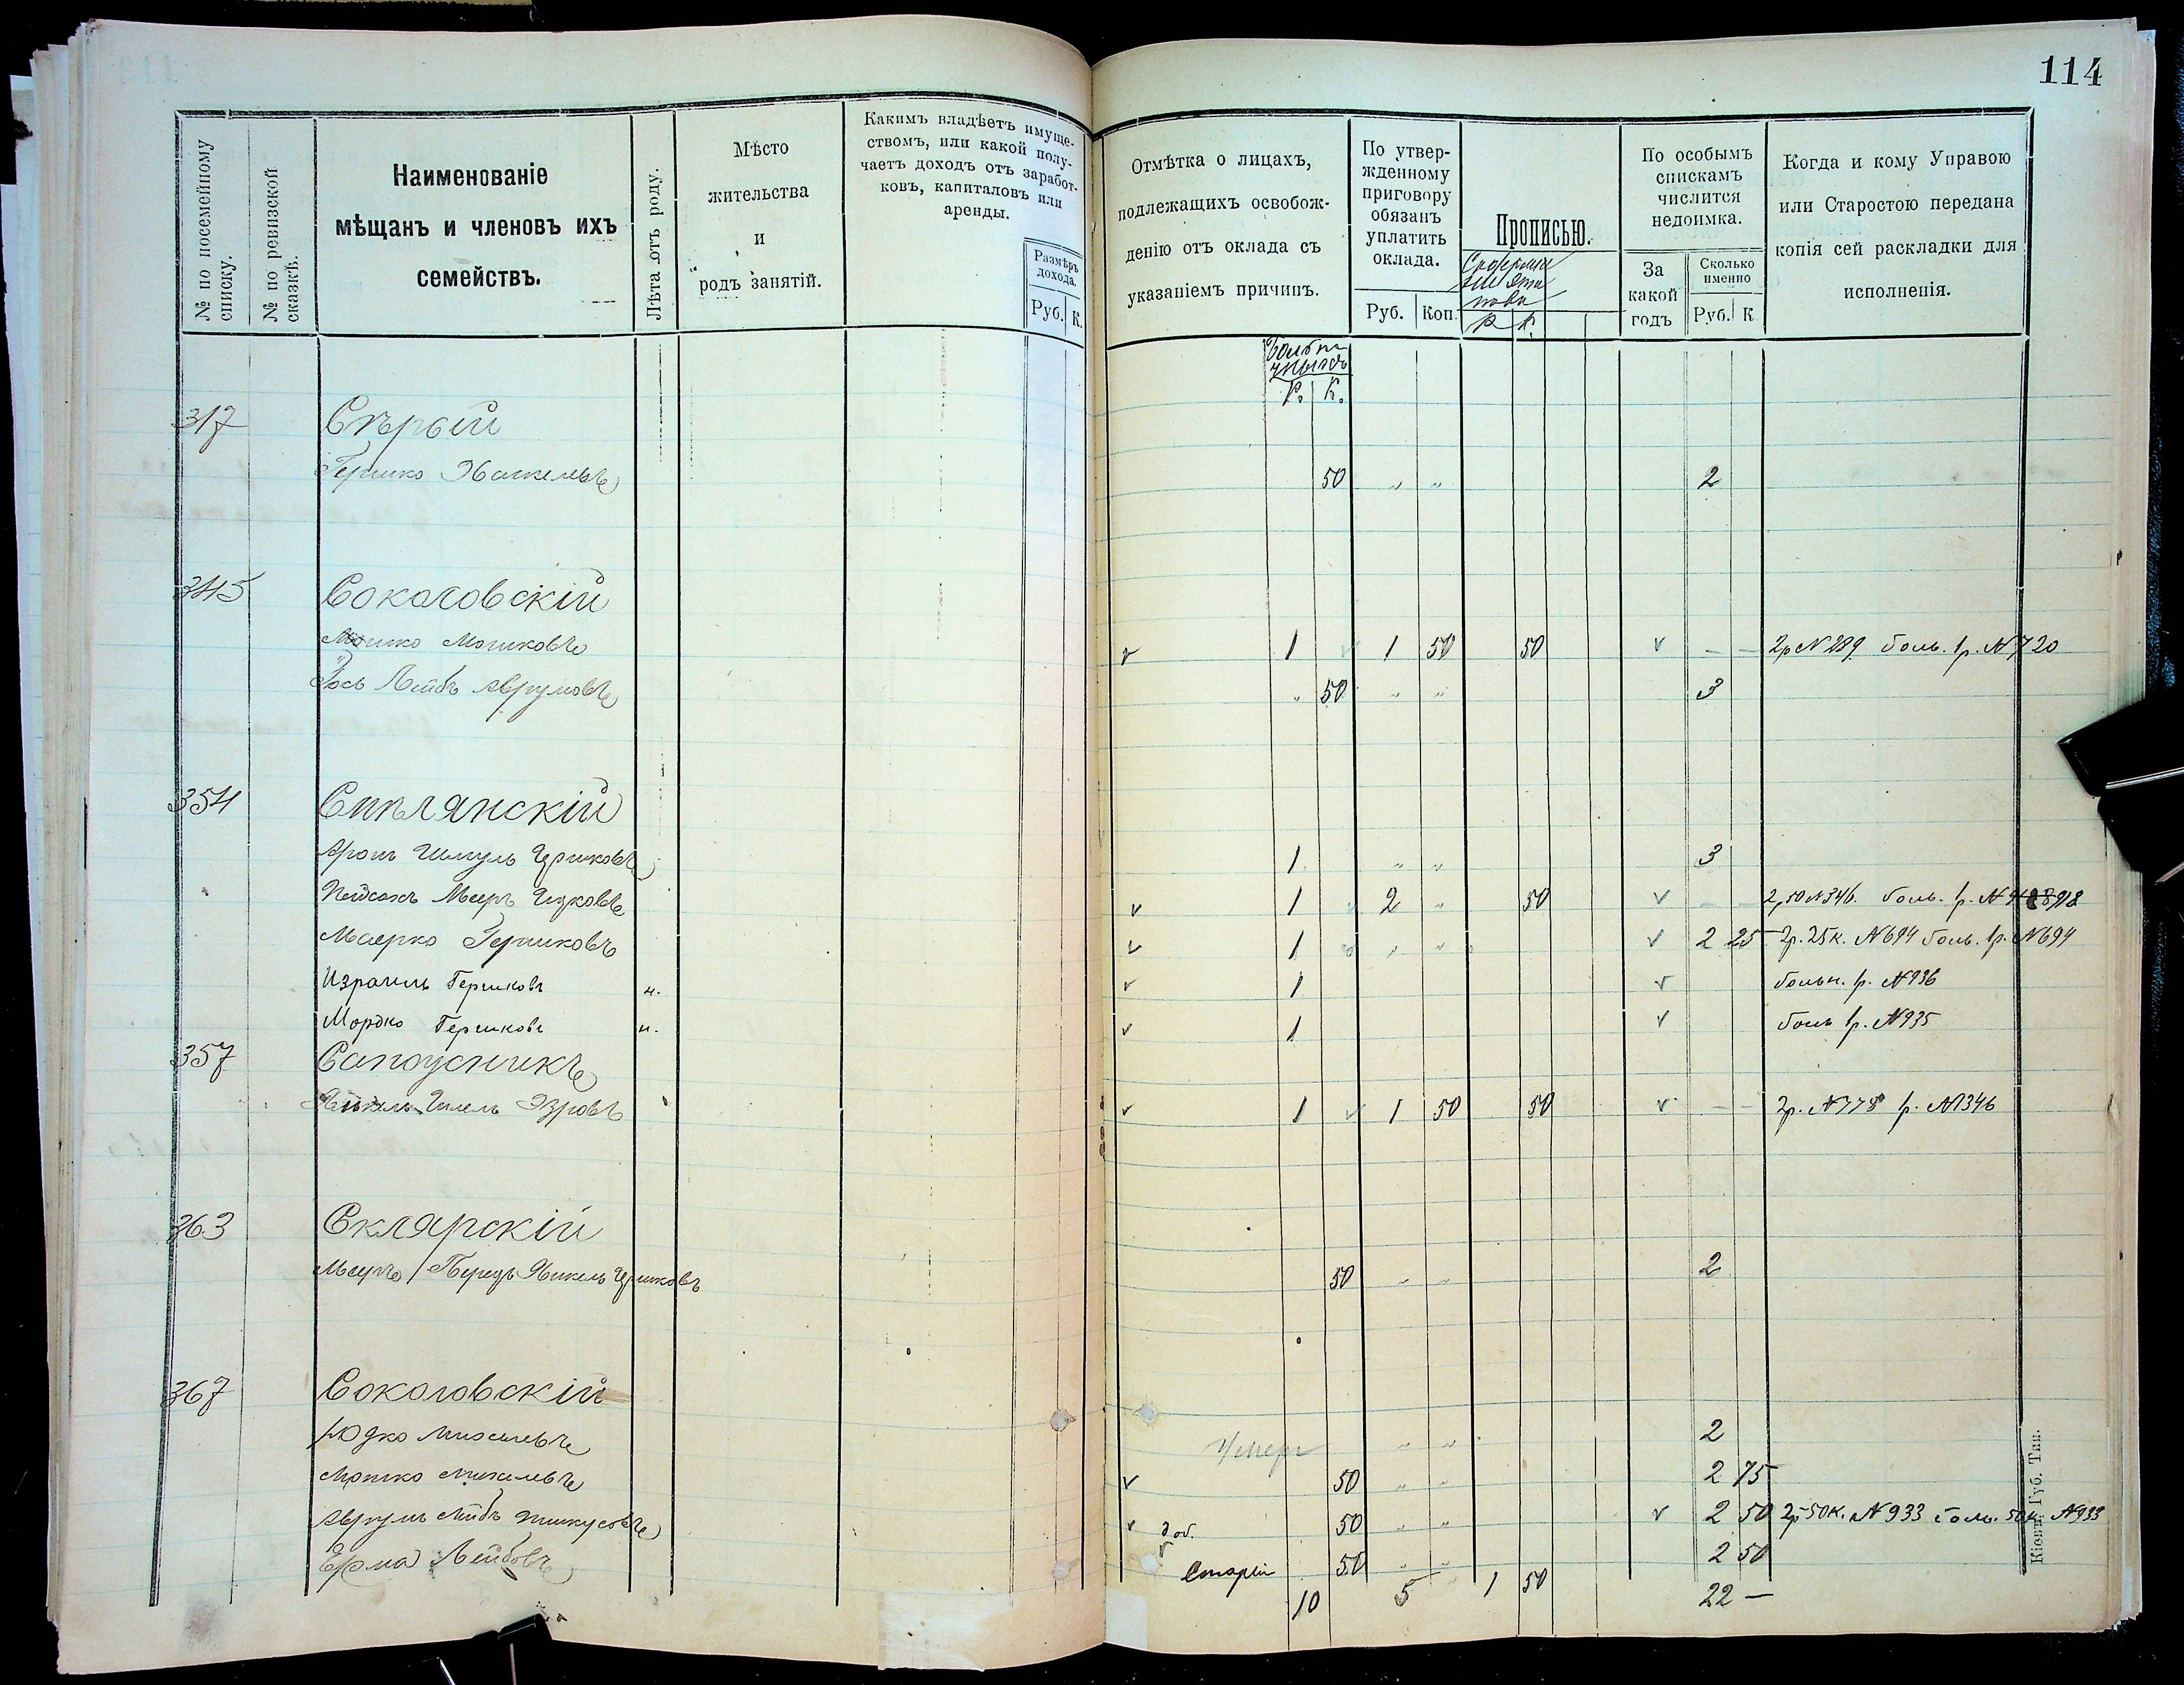 114
№ по посемейному списку.
№ по ревизской сказкѣ.
Наименованіе
мѣщанъ и членовъ ихъ
семействъ.
Лѣта отъ роду.
Мѣсто
жительства
и
родъ занятій.
Какимъ владѣетъ имуще-
ствомъ, или какой полу-
чаетъ доходъ отъ заработ-
ковъ, капиталовъ или
аренды.
Размѣръ
дохода.
Руб. К.
Отмѣтка о лицахъ,
подлежащихъ освобож-
денію отъ оклада съ
указаніемъ причинъ.
По утвер-
жденному
приговору
обязанъ
уплатить
оклада.
Руб. Коп.
Прописью.
Р. К.
По особымъ
спискамъ
числится
недоимка.
За
какой
годъ
Сколько
именно
Руб. К
Когда и кому Управою
или Старостою передана
копія сей раскладки для
исполненія.
Р. К.
317 Сѣрый
Гершко Хаскелевъ 50 " " 2
345 Соколовскій
Мошко Мошковъ v 1 v 1 50 50 v — — 2р N 289 боль. 1р. N 720
Іось Лейбъ Аврумовъ " 50 " " 3
354 Смѣлянскій
Аронъ Шмуль Гершковъ 1 " " 3
Пейсахъ Мееръ Ицковъ v 1 v 2 " 50 v — — 2,50 N 346. боль. 1р. N 918
Маерко Гершковъ v 1 " " v 2 25 2р. 25к. N 694 боль. 1р. N 694
Израиль Гершковъ н. v 1 v больн. 1р. N 936
Мордко Гершковъ н. v 1 v боль 1р. N 935
357 Сапоусникъ
Шлемъ Эзровъ v 1 v 1 50 50 v — — 2р. N 778 1р. N 1346
363 Склярскій
Мееръ Берездъ Янкель Гершковъ 50 " " 2
367 Соколовскій
Юдко Михелевъ Умеръ " " 2
Мошко Михелевъ v 50 " " 2 75
Аврумъ Лейбъ v доб. 50 " " v 2 50 2р 50к. N 933 боль. 50к. N 933
Срма Лейбовъ v Старый 50 " " 2 50
10 5 1 50 22 —
Кіевъ, Губ. Тип.